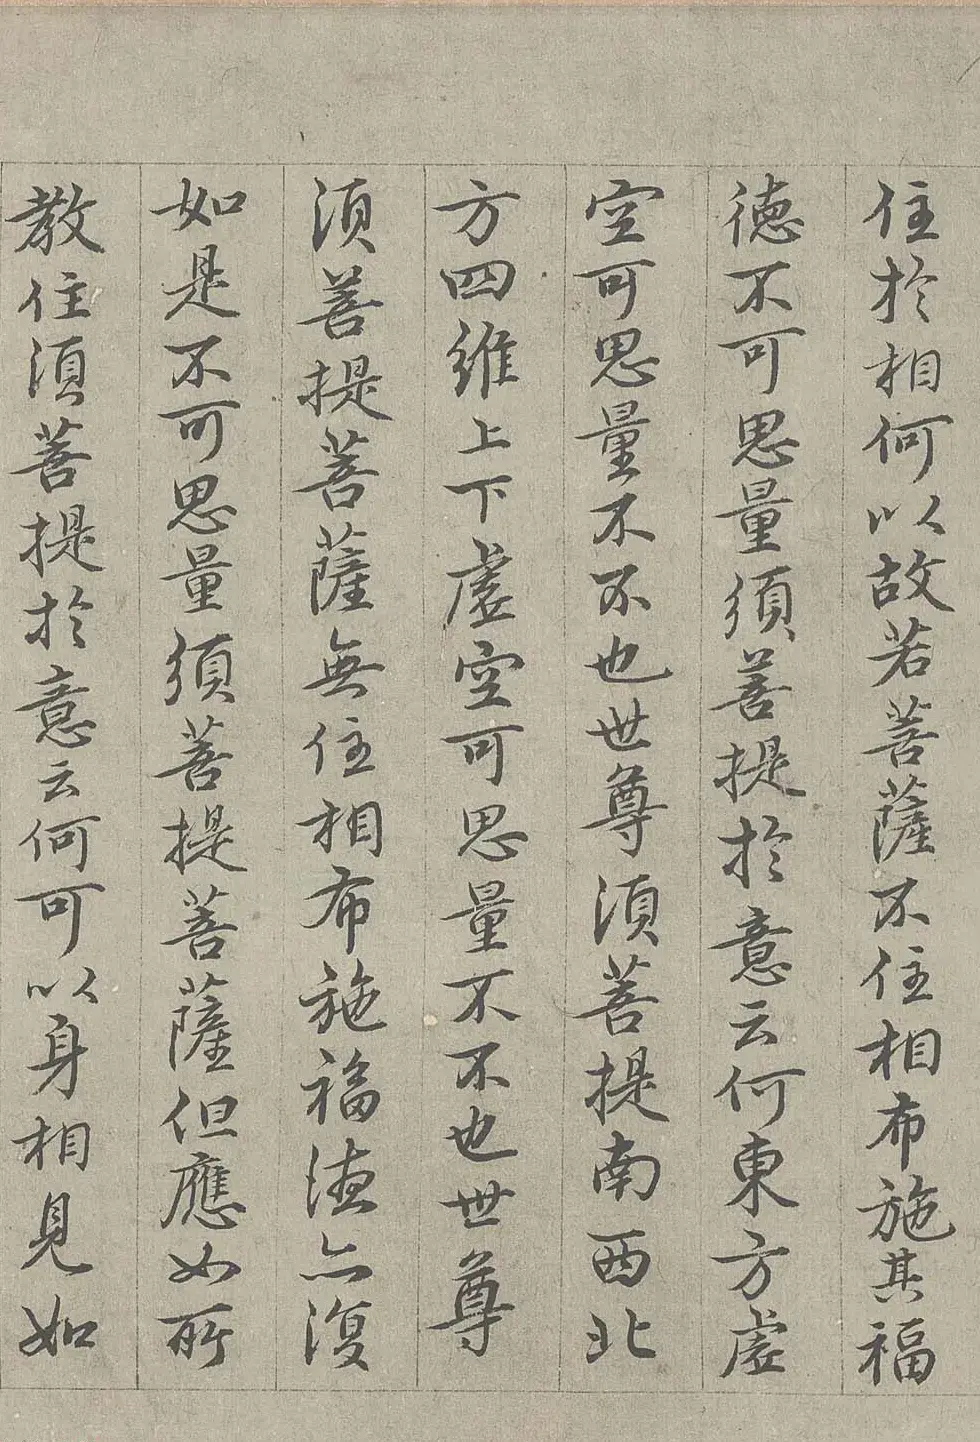 住於相何以故若菩薩不住相布施其福
德不可思量須菩提於意云何東方虛
空可思量不不也世尊須菩提南西北
方四維上下虛空可思量不不也世尊
須菩提菩薩無住相布施福德亦復
如是不可思量須菩提菩薩但應如所
教住須菩提於意云何可以身相見如